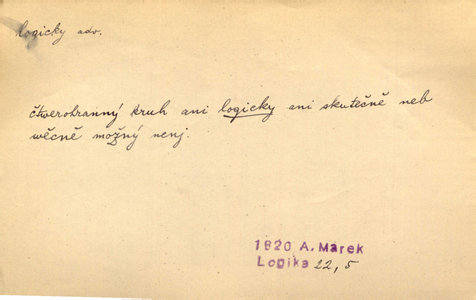 logicky adv.
čtwerohranný kruh ani logicky ani skutečně neb
wěcně možný nenj.
1820 A. Marek
Logika 22, 5